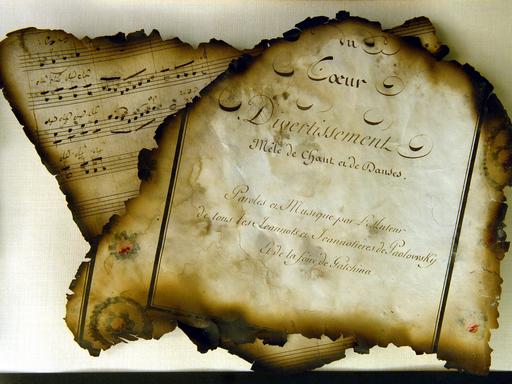 du
Cœur
Divertissement
Mêlé de Chant et de Danses.
Paroles et Musique par l'Auteur
de tous les Jeannots et Jeannotieres de Paolovsky
et de la foire de Gatchina